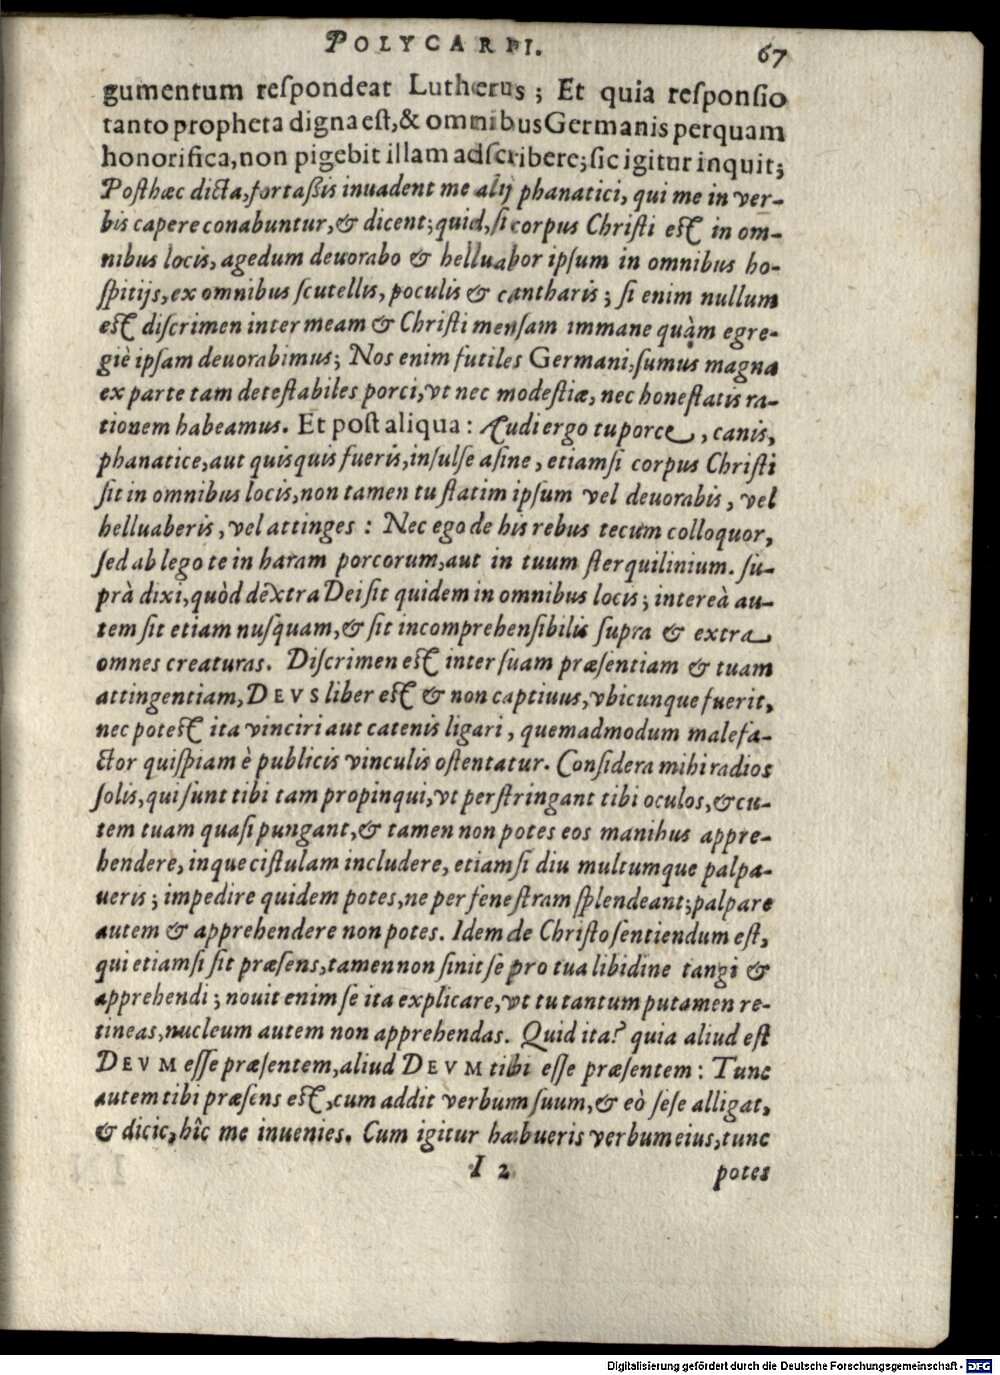 POLYCARPI. 67
gumentum reſpondeat Lutherus; Et quia reſponſio
tanto propheta digna eſt, & omnibus Germanis perquam
honorifica, non pigebit illam adſcribere; ſic igitur inquit;
Poſthæc dicta, fortaßis inuadent me alij phanatici, qui me in ver-
bis capere conabuntur, & dicent; quid, ſi corpus Chriſti eſt in om-
nibus locis, agedum deuorabo & helluabor ipſum in omnibus ho-
ſpitijs, ex omnibus ſcutellis, poculis & cantharis; ſi enim nullum
eſt diſcrimen inter meam & Chriſti menſam immane quàm egre-
giè ipſam deuorabimus; Nos enim futiles Germani, ſumus magna
ex parte tam deteſtabiles porci, vt nec modeſtiæ, nec honeſtatis ra-
tionem habeamus. Et poſt aliqua: Audi ergo tu porce, canis,
phanatice, aut quisquis fueris, inſulſe aſine, etiamſi corpus Chriſti
ſit in omnibus locis, non tamen tu ſtatim ipſum vel deuorabis, vel
helluaberis, vel attinges: Nec ego de his rebus tecum colloquor,
ſed ablego te in haram porcorum, aut in tuum ſterquilinium. ſu-
prà dixi, quòd dextra Dei ſit quidem in omnibus locis; intereà au-
tem ſit etiam nuſquam, & ſit incomprehenſibilis ſupra & extra
omnes creaturas. Diſcrimen eſt inter ſuam præſentiam & tuam
attingentiam, DEVS liber eſt & non captiuus, vbicunque fuerit,
nec poteſt ita vinciri aut catenis ligari, quemadmodum malefa-
ctor quiſpiam è publicis vinculis oſtentatur. Conſidera mihi radios
ſolis, qui ſunt tibi tam propinqui, vt perſtringant tibi oculos, & cu-
tem tuam quaſi pungant, & tamen non potes eos manibus appre-
hendere, inque ciſtulam includere, etiamſi diu multumque palpa-
ueris; impedire quidem potes, ne per feneſtram ſplendeant; palpare
autem & apprehendere non potes. Idem de Chriſto ſentiendum eſt,
qui etiamſi ſit præſens, tamen non ſinit ſe pro tua libidine tangi &
apprehendi; nouit enim ſe ita explicare, vt tu tantum putamen re-
tineas, nucleum autem non apprehendas. Quid ita? quia aliud eſt
DEVM eſſe præſentem, aliud DEVM tibi eſſe præſentem: Tunc
autem tibi præſens eſt, cum addit verbum ſuum, & eò ſeſe alligat,
& dicic, hîc me inuenies. Cum igitur habueris verbum eius, tunc
I 2 potes
Digitalisierung gefördert durch die Deutsche Forschungsgemeinschaft - DFG